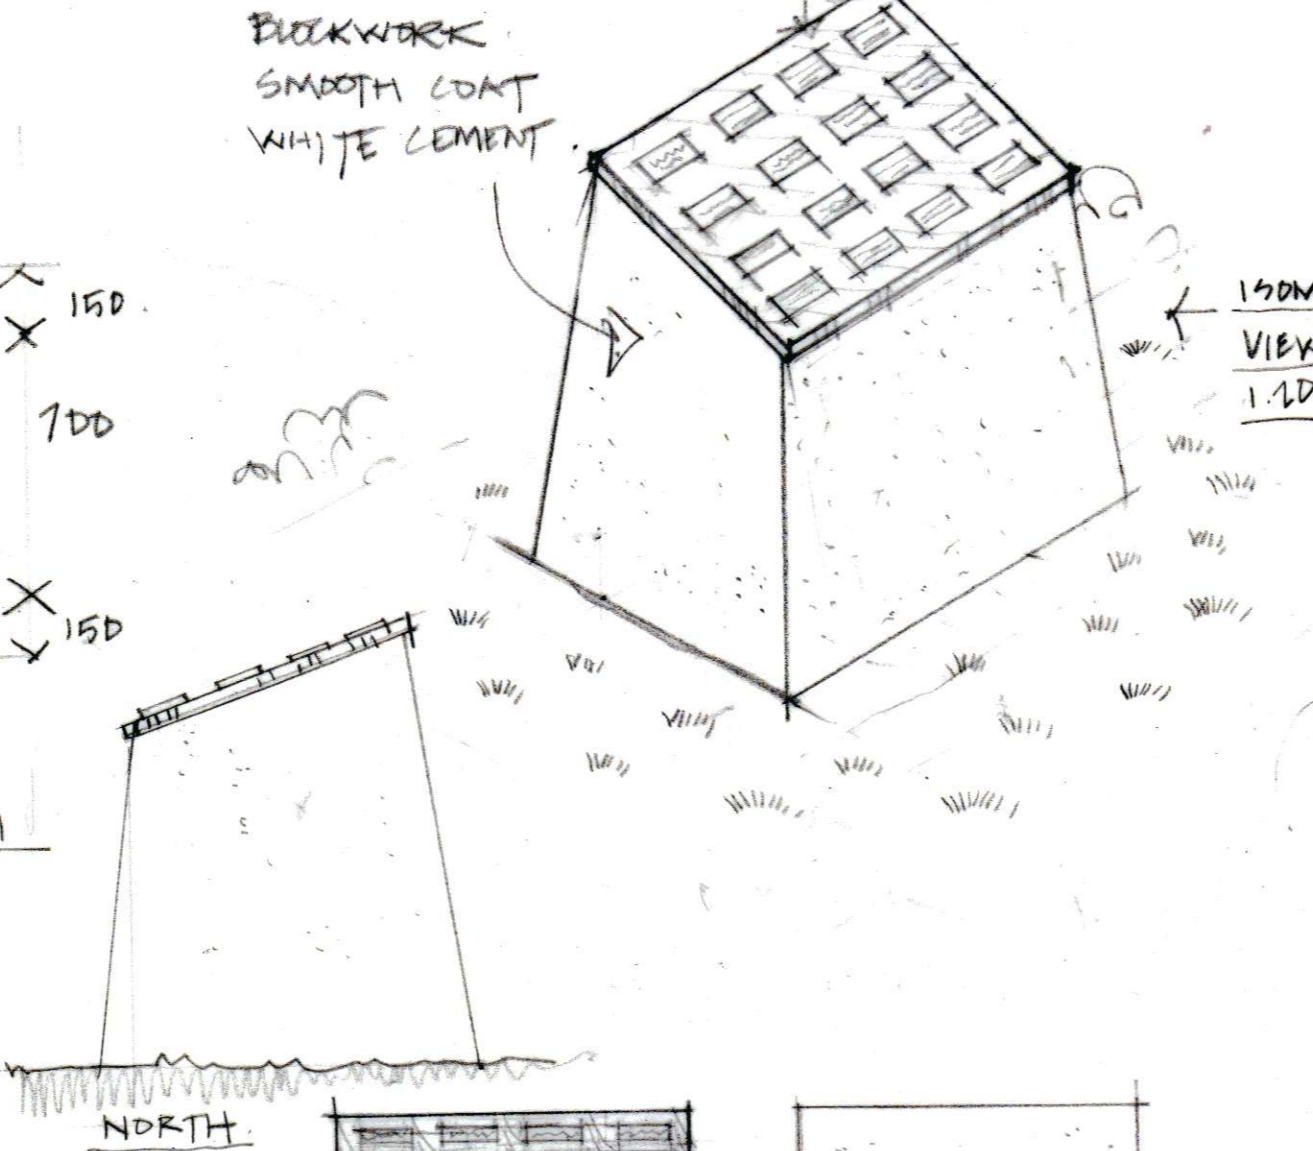 BLOCKWORK
SMOOTH COAT
WHITE CEMENT.
150
700
150
ISOM
VIEW
1.20
NORTH.